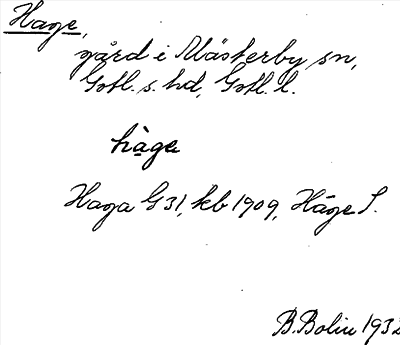 Hage,
gård i Mästerby sn,
Gotl. s. hd, Gotl. l.
hàge
Haga G 31, kb 1909, Häge S.
B. Bolin 1932